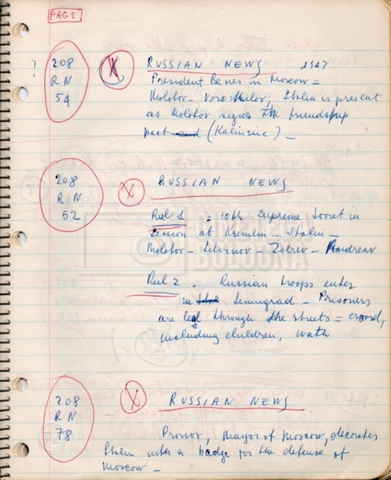 PAGE 2
? 208 RN 54 X RUSSIAN NEWS 1943
President Benes in Moscow =
Molotov - Voroshilov; Stalin is present
as Molotov signs the friendship
pact (Kalinine) -
208 RN 62 X RUSSIAN NEWS
Reel 1 = 10th Supreme Soviet in
session at Kremlin Stalin -
Molotov - - Andreev
Reel 2 - Russian troops enter
in Leningrad - Prisoners
are led through the streets = crowd,
including children, watch
208 RN 78 X RUSSIAN NEWS
Pronov, Mayor of Moscow, decorates
Stalin with a badge for the defense of
Moscow -